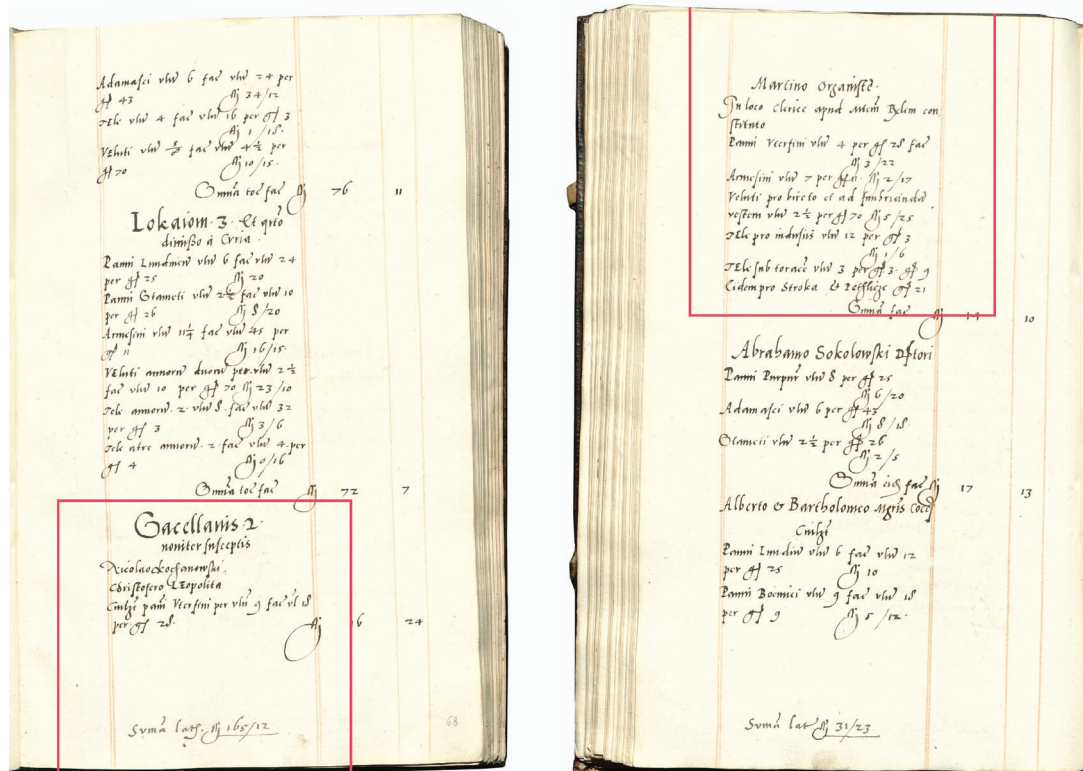 Adamasci vlN 6 fac vlN 24 per
gr 43 fl 34/12
Tele vlN 4 fac vlN 16 per gr 3
fl 1/18.
Veluti vlN fac vlN 4 1/2 per
gr 70 fl 10/15.
Summa tot fac fl 76 11
Lokaiom 3. Et qrto
dimisso à Curia.
Panni Lundinen vlN 6 fac vlN 24
per gr 25 fl 20
Panni Stameti vlN 2 1/2 fac vlN 10
per gr 26 fl 8/20
Armesini vlN 11 1/4 fac vlN 45 per
gr 11 fl 16/15
Veluti annorum duorum per vlN 2 1/2
fac vlN 10 per gr 70 fl 23/10
Tele annorum 2 vlN 8 fac vlN 32
per gr 3 fl 3/6
Tele atre annorum 2 fac vlN 4 per
gr 4 fl 0/16
Summa tot fac fl 72 7
Cacellanis 2
noviter susceptis
Nicolao Kochanowski
Christofero Leopolita
Cuilibet pani Vterfini per vlN 9 fac vl 18
per gr 28. fl 6 24
Suma lat. fl 165/12
68
Martino Organiste.
In loco Clerice apud Bekem con
stituto
Panni Vterfini vlN 4 per gr 28 fac
fl 3/22
Armesini vlN 7 per gr 11 fl 2/17
Veluti pro bireto et ad fimbrianda
vestem vlN 2 1/2 per gr 70 fl 5/25
Tele pro indusiis vlN 12 per gr 3
fl 1/6
Tele sub torace vlN 3 per gr 3. gr 9
Eidem pro Stroka & Pethlicze gr 21
Summa fac fl 14 10
Abrahamo Sokolowski
Panni Purpur vlN 8 per gr 25
fl 6/20
Adamasci vlN 6 per gr 43
fl 8/18.
Stameti vlN 2 1/2 per gr 26
fl 2/5
Summa fac fl 17 13
Alberto & Bartholomeo
Cuilibet
Panni Lundin vlN 6 fac vlN 12
per gr 25 fl 10
Panni Boemici vlN 9 fac vlN 18
per gr 9 fl 5/12.
Suma lat fl 31/23